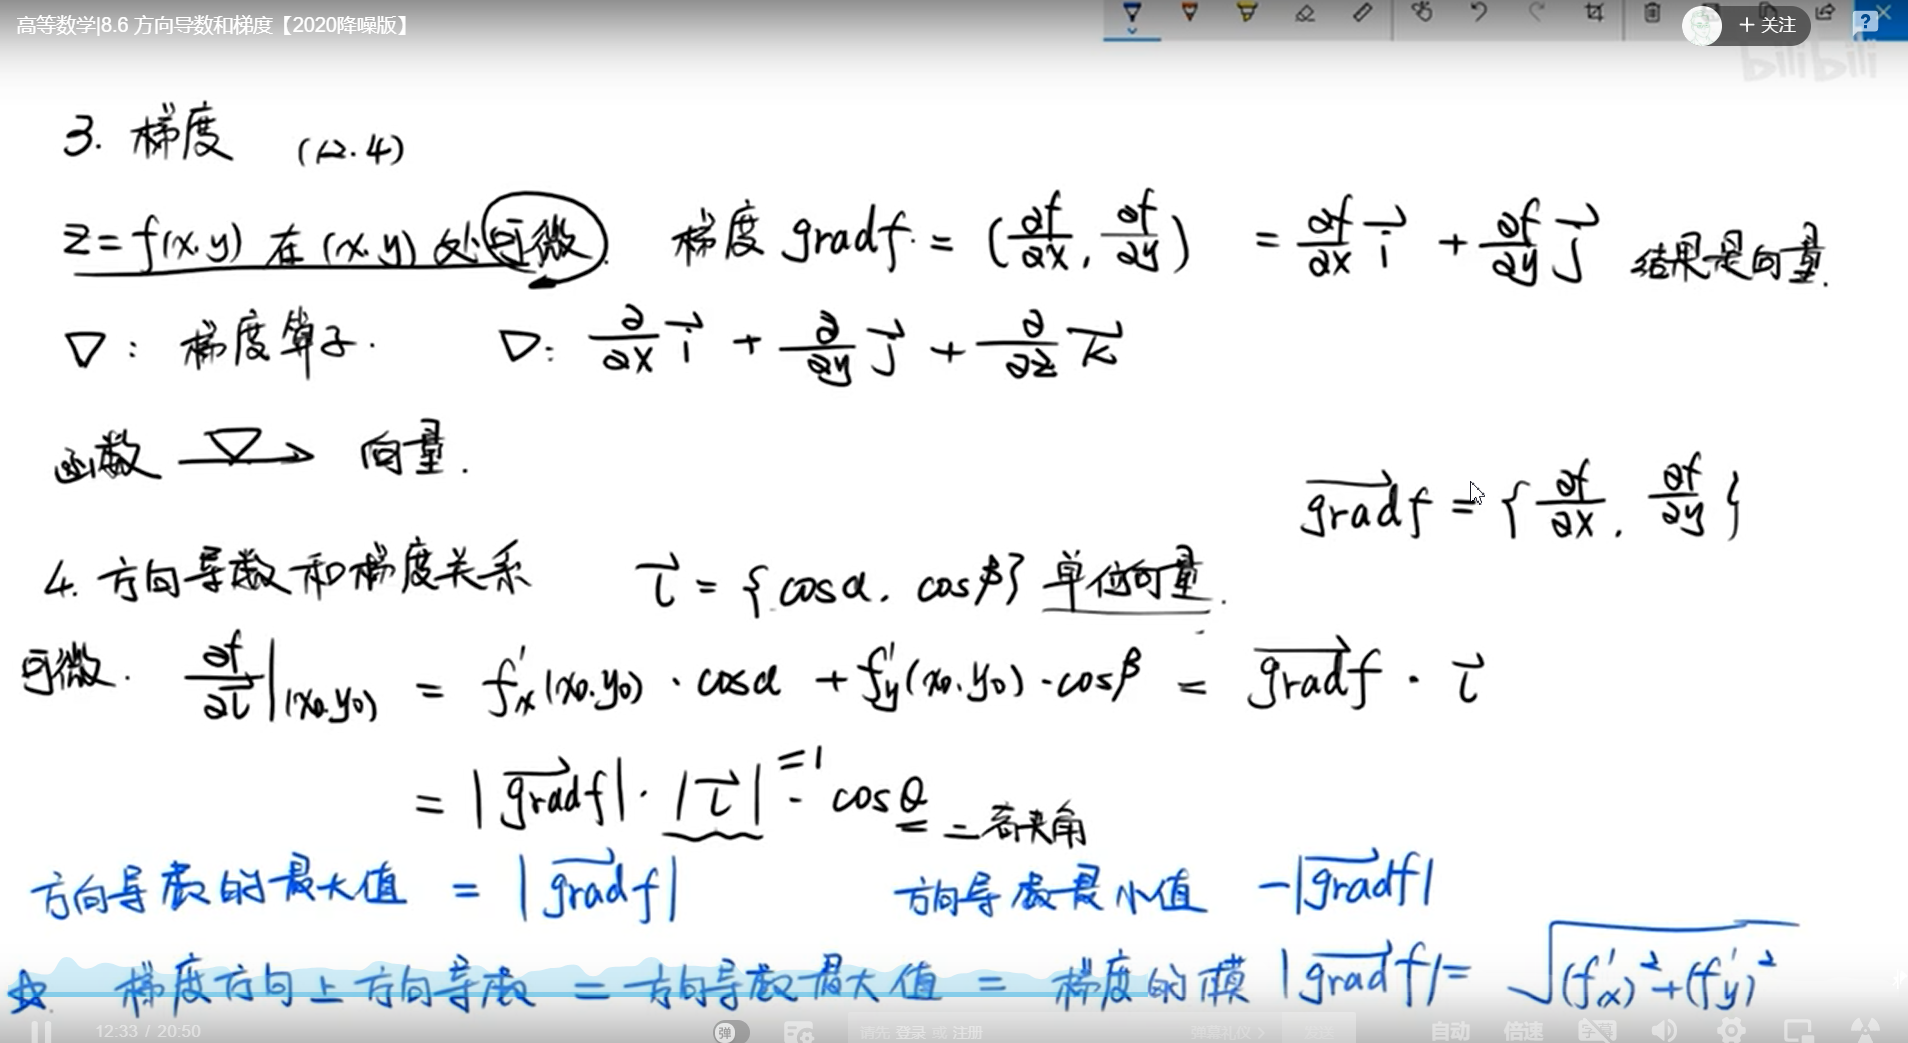 高等数学|8.6 方向导数和梯度【2020降噪版】
+ 关注
bilibili
3. 梯度 (12.4)
z = f(x,y) 在 (x,y) 处可微. 梯度 gradf = (∂f/∂x, ∂f/∂y) = ∂f/∂x i⃗ + ∂f/∂y j⃗ 结果是向量.
▽: 梯度算子. ▽: ∂/∂x i⃗ + ∂/∂y j⃗ + ∂/∂z k⃗
函数 —▽→ 向量.
gradf⃗ = {∂f/∂x, ∂f/∂y}
4. 方向导数和梯度关系 l⃗ = {cosα, cosβ} 单位向量.
可微. ∂f/∂l⃗ |(x₀,y₀) = f'x(x₀,y₀)·cosα + f'y(x₀,y₀)·cosβ = gradf⃗ · l⃗
= |gradf⃗| · |l⃗| =1 · cosθ = 夹角
方向导数的最大值 = |gradf⃗| 方向导数最小值 -|gradf⃗|
☆ 梯度方向上方向导数 = 方向导数最大值 = 梯度的模 |gradf⃗| = √((f'x)²+(f'y)²)
12:33 / 20:50 弹 请先 登录 或 注册 弹幕礼仪 > 发送 自动 倍速 字幕